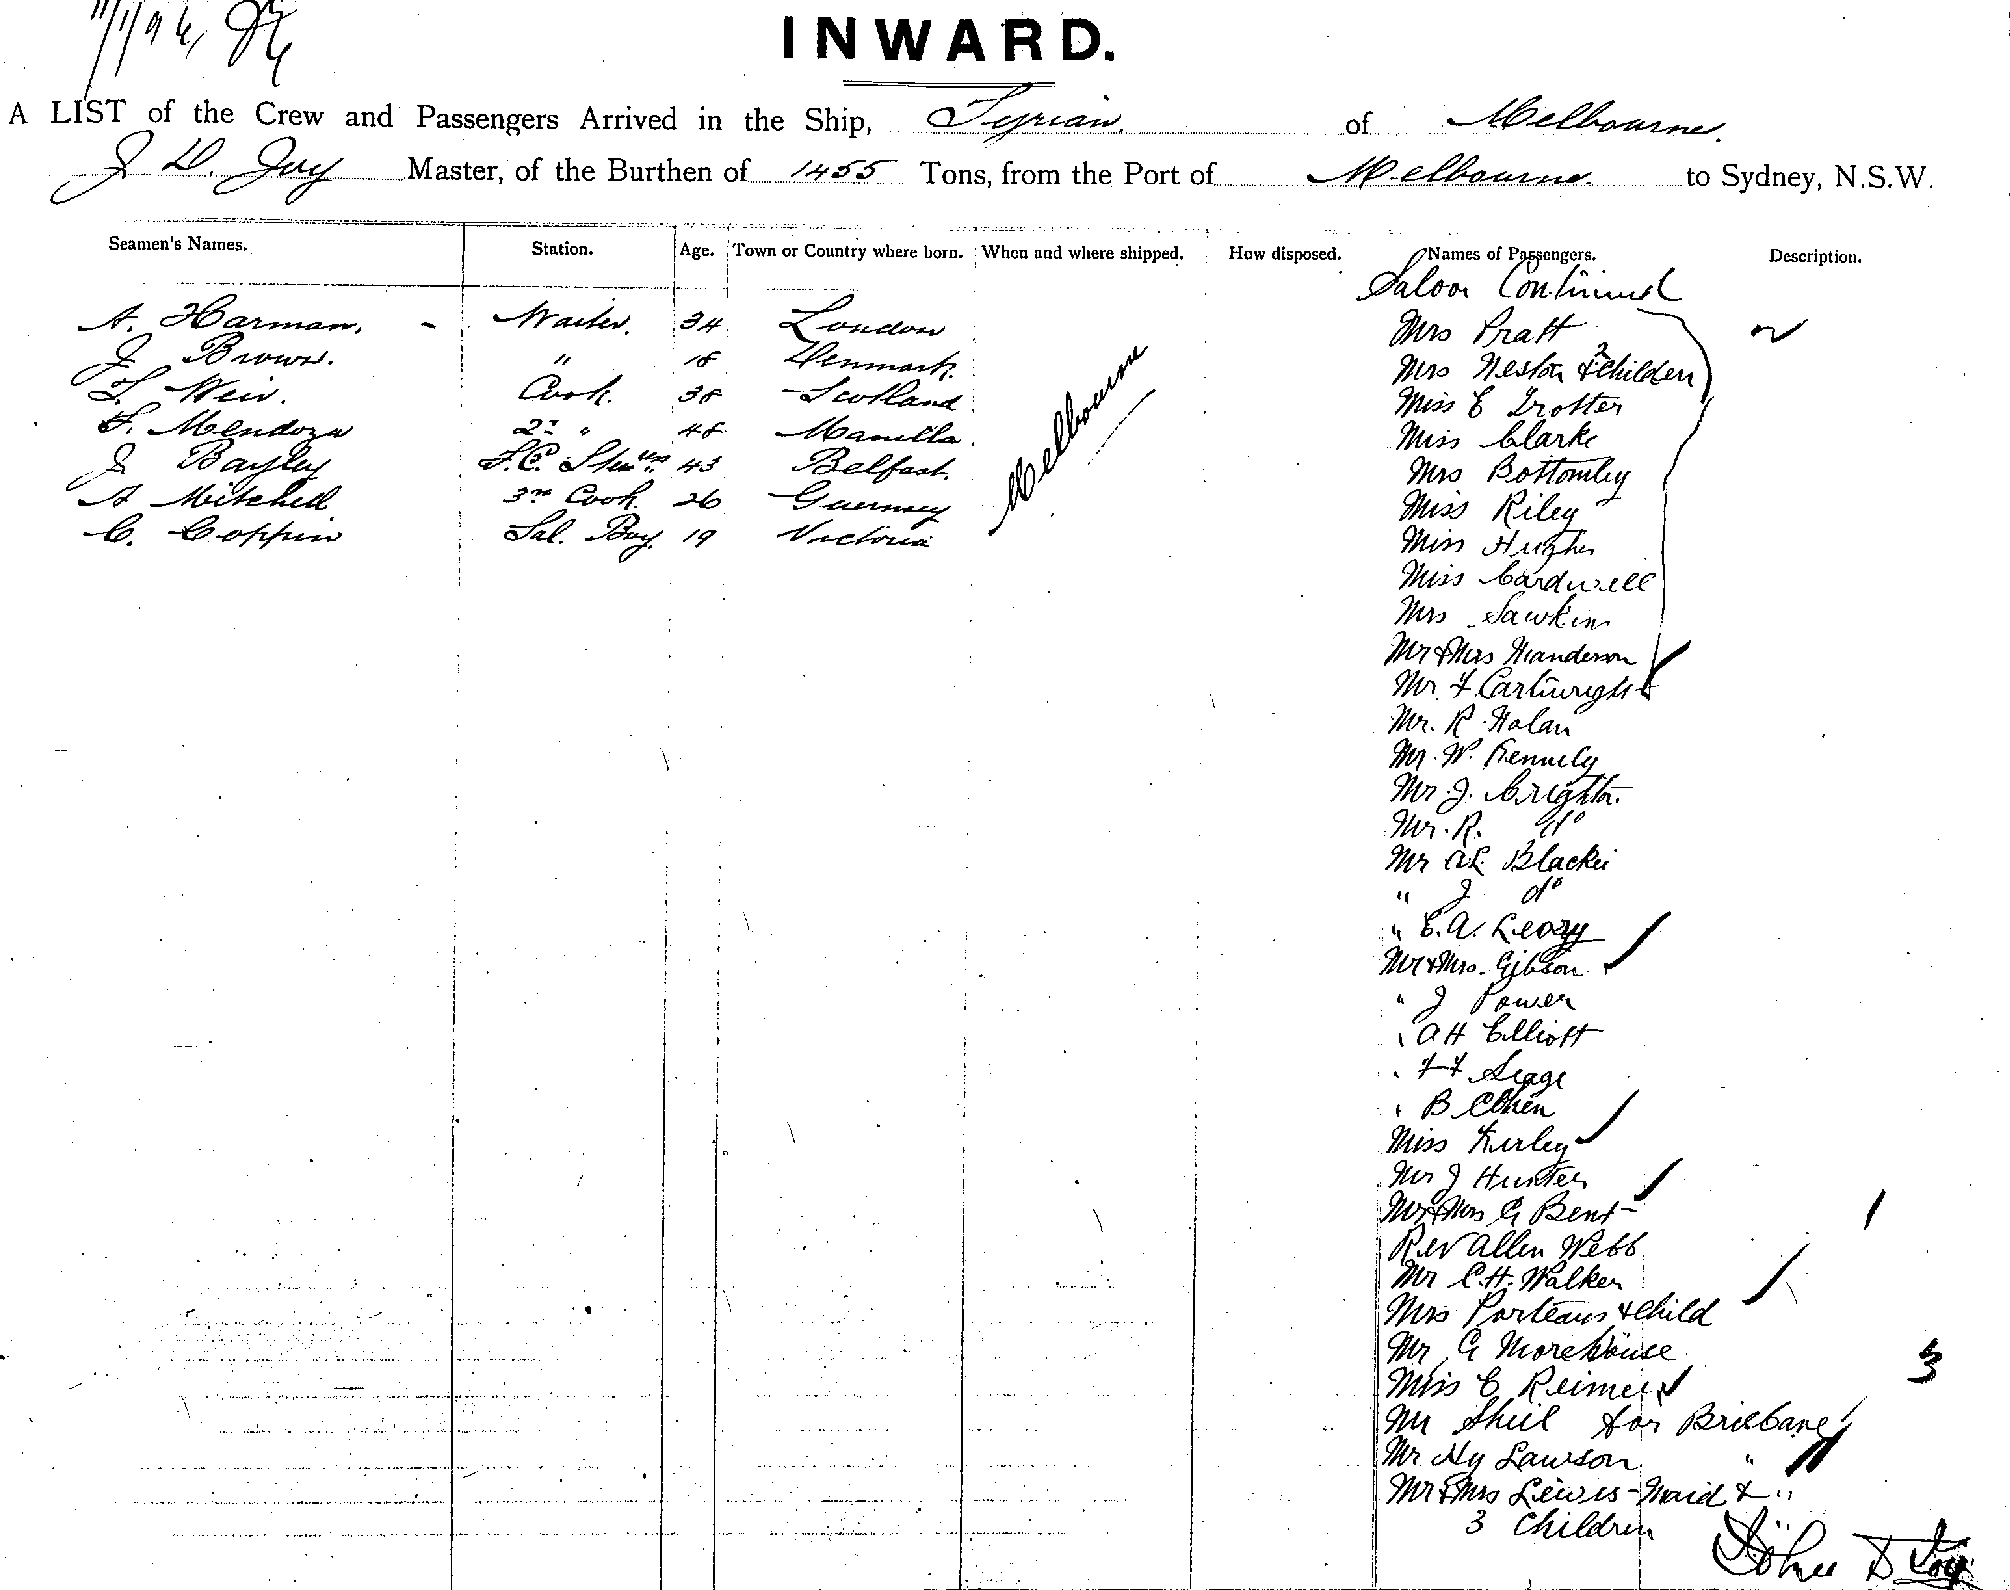 11/1/96
INWARD.
A LIST of the Crew and Passengers Arrived in the Ship, Tyrian of Melbourne.
J D. Joy Master, of the Burthen of 1455 Tons, from the Port of Melbourne. to Sydney, N.S.W.
Seamen's Names. Station. Age. Town or Country where born. When and where shipped. How disposed. Names of Passengers. Description.
Saloon Continued
A. Harman. - Waiter. 34 London
J Brown. " 18 Denmark.
Weir. Cook. 38 Scotland
F. Mendoza 2nd " 48 Manilla.
J Bayley F.C. 43 Belfast.
A Mitchell 3rd Cook. 26 Guernsey
C. Coppin Sal. Boy. 19 Victoria
Melbourne
Mrs Pratt
Mrs Neston & 2 Children
Miss E Trotter
Miss Clarke
Mrs Bottomley
Miss Riley
Miss Hughes
Miss Cardwell
Mrs Sawkins
Mr & Mrs Manderson
Mr. F. Cartwright
Mr. R Nolan
Mr. W. Fennely
Mr. J. Crighton.
Mr. R. do
Mr AL Blackie
" J do
" E.A. Leozy
Mr & Mrs. Gibson
" J Power
" A H Elliott
" Seage
" B Cohen
Miss Kurley
Mr J Hunter
Mr & Mrs G Bent
Rev Allen Webb
Mr C.H. Walker
Mrs Porteaus & Child
Mr G Morehouse
3
Miss E Reimers
Mr Shiel for Brisbane
Mr Hy Lawson "
Mr & Mrs Lewis - Maid & "
3 Children "
John D Joy